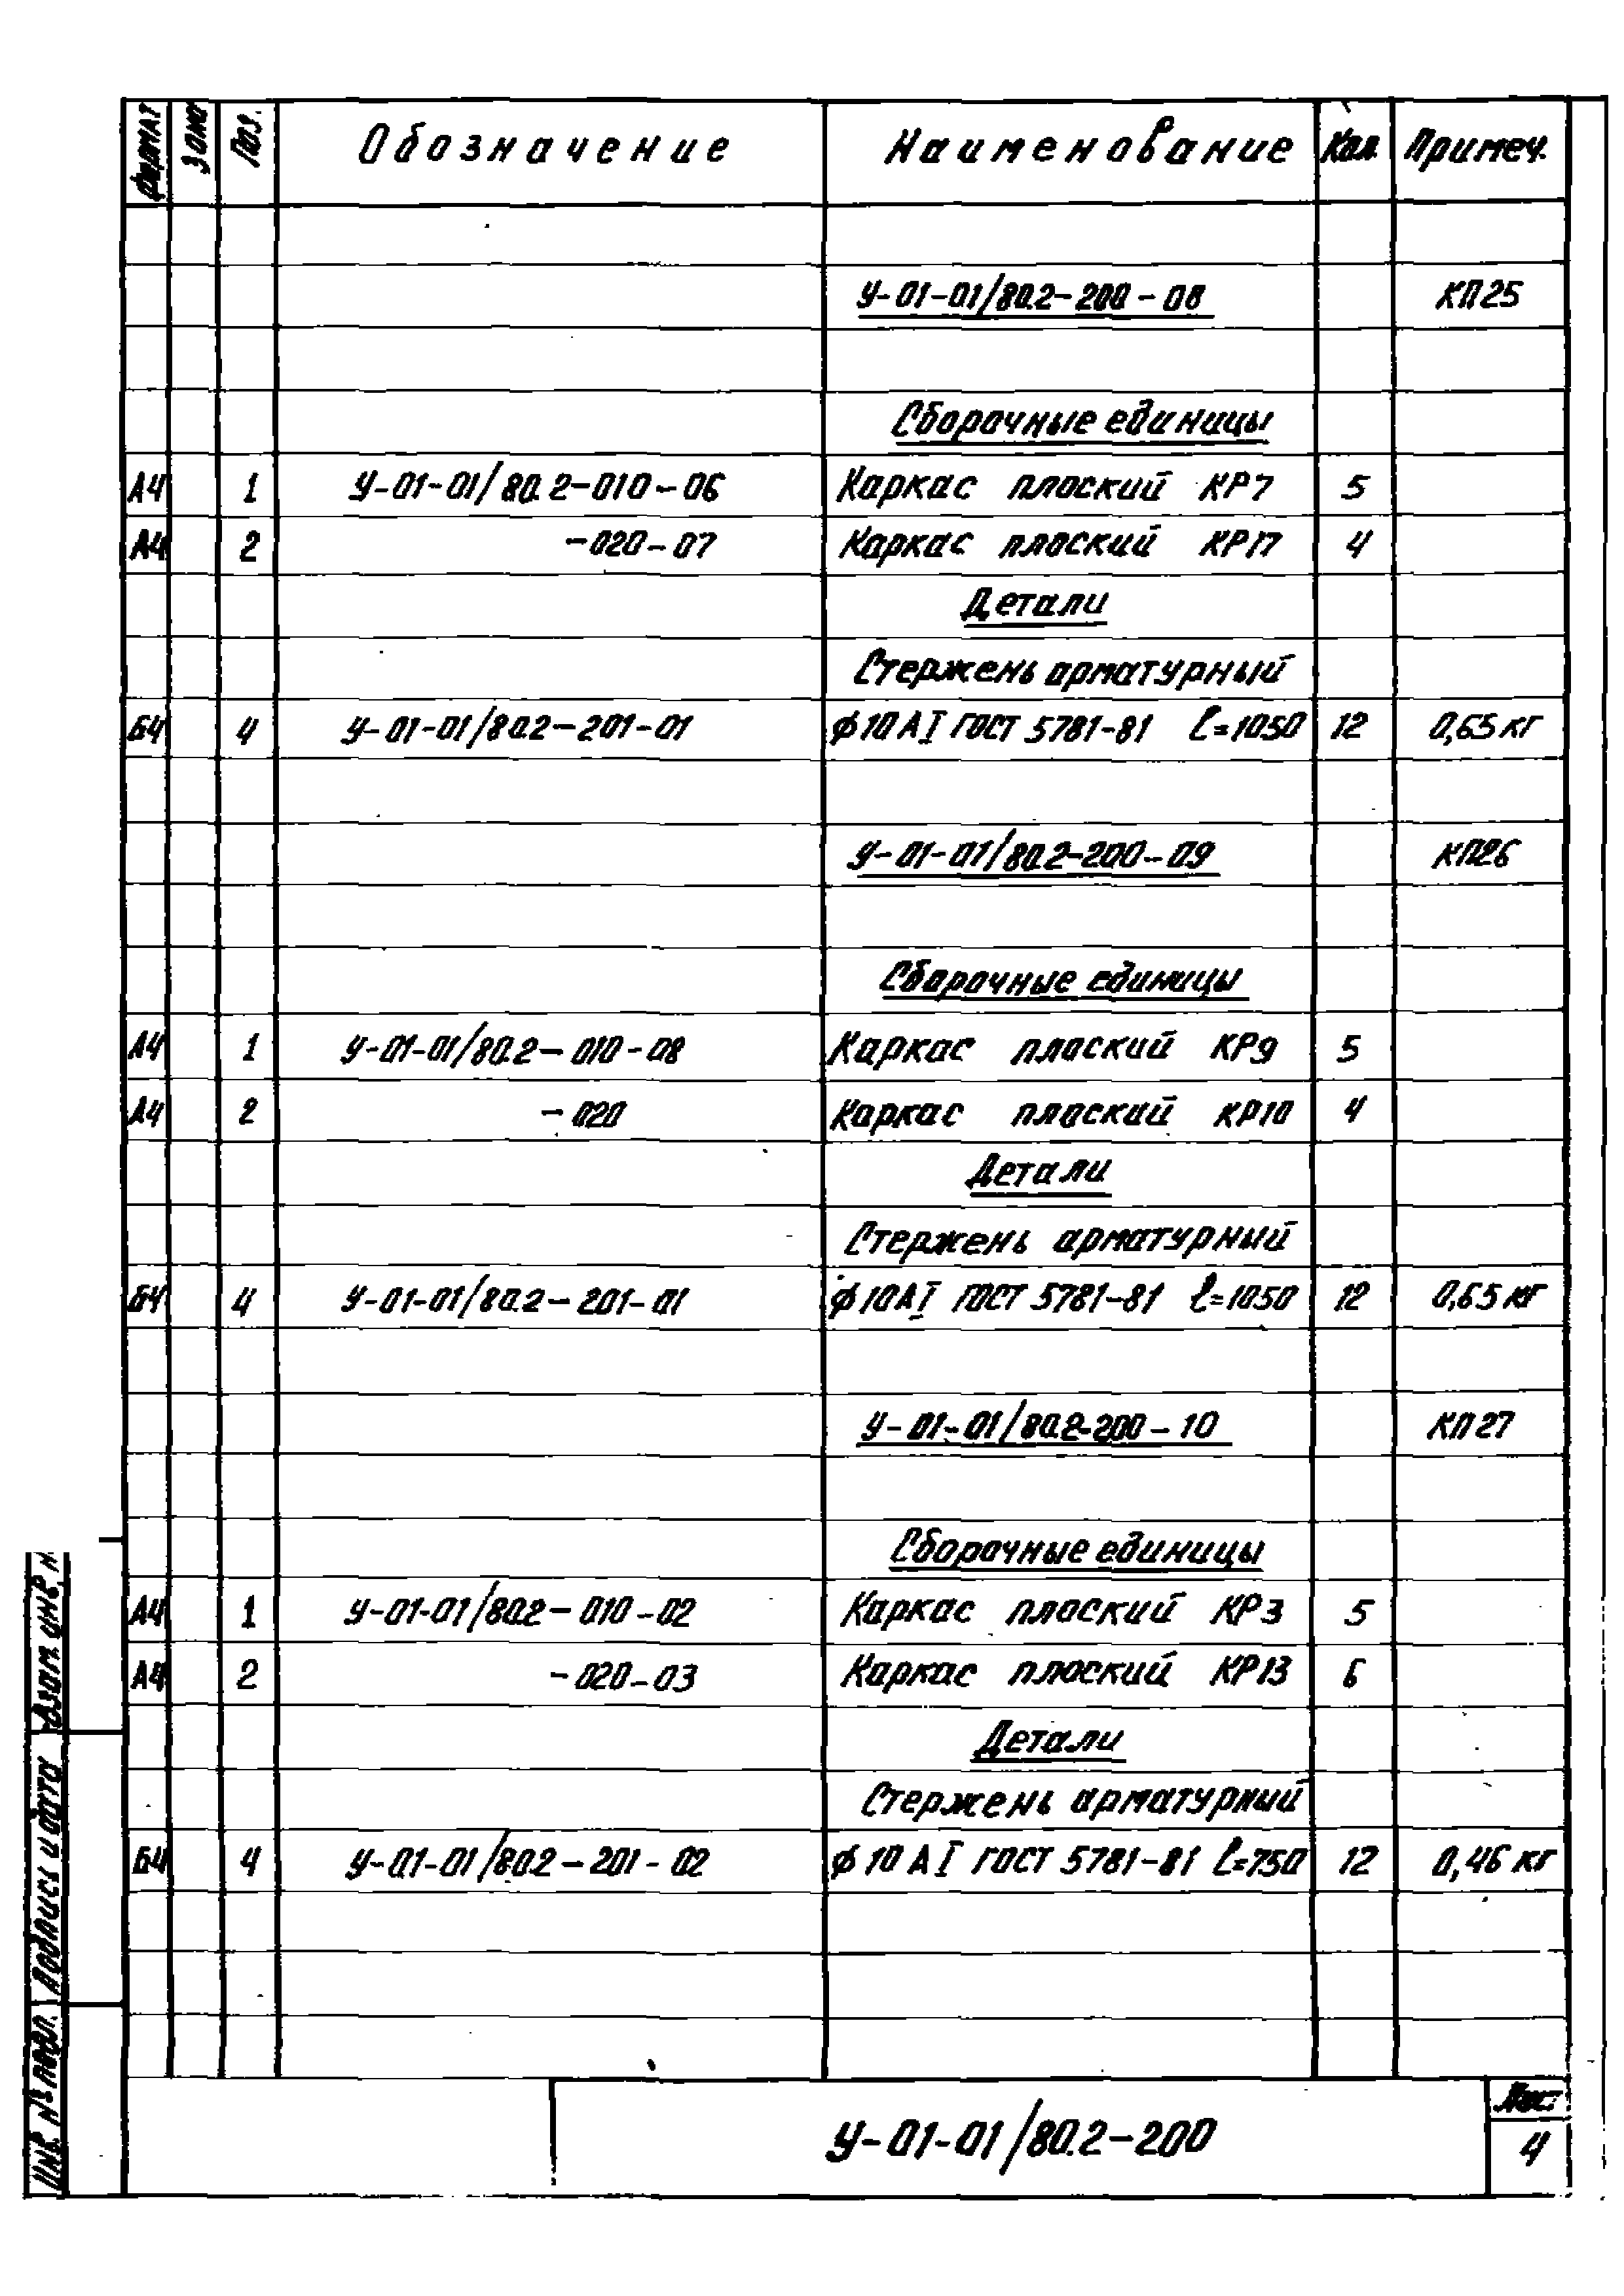 Формат Зона Поз. Обозначение Наименование Кол. Примеч.
У-01-01/80.2-200-08 КП25
Сборочные единицы
А4 1 У-01-01/80.2-010-06 Каркас плоский КР7 5
А4 2 -020-07 Каркас плоский КР17 4
Детали
Стержень арматурный
Б4 4 У-01-01/80.2-201-01 ϕ10АI ГОСТ 5781-81 ℓ=1050 12 0,65 кг
У-01-01/80.2-200-09 КП26
Сборочные единицы
А4 1 У-01-01/80.2-010-08 Каркас плоский КР9 5
А4 2 -020 Каркас плоский КР10 4
Детали
Стержень арматурный
Б4 4 У-01-01/80.2-201-01 ϕ10АI ГОСТ 5781-81 ℓ=1050 12 0,65 кг
У-01-01/80.2-200-10 КП27
Сборочные единицы
А4 1 У-01-01/80.2-010-02 Каркас плоский КР3 5
А4 2 -020-03 Каркас плоский КР13 6
Детали
Стержень арматурный
Б4 4 У-01-01/80.2-201-02 ϕ10 АI ГОСТ 5781-81 ℓ=750 12 0,46 кг
Инв. № подл. Подпись и дата Взам. инв. н.
У-01-01/80.2-200
Лист
4